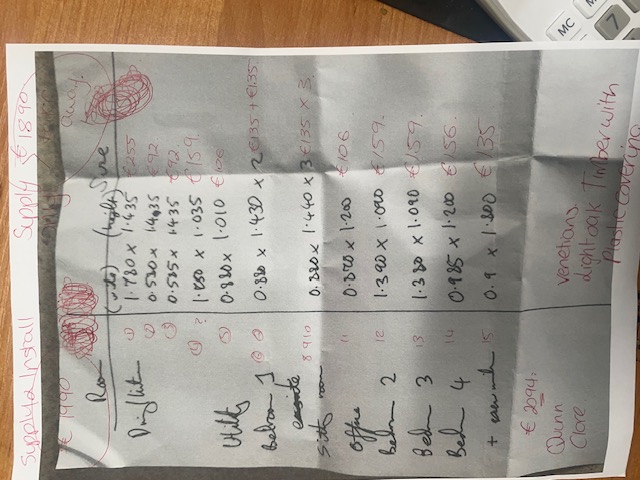 Supply & Install
€ 1990
Supply € 1890
only
Room (width) (height) Size
Dining/Kitchen ① 1.780 x 1.435 €255
② 0.530 x 1.435 €92
③ 0.535 x 1.435 €92
④ ? 1.035 €159.
Utility ⑤ 0.880 x 1.010 €106
Bedroom 1 ⑥ ⑦ 0.880 x 1.430 x 2 €135 + €135
ensuite
Sitting room 8 9 10 0.880 x 1.440 x 3 €135 x 3.
Office 11 0.870 x 1.200 €106
Bedroom 2 12 1.390 x 1.090 €159.
Bedroom 3 13 1.380 x 1.090 €159.
Bedroom 4 14 0.985 x 1.200 €156.
+ 15. 0.9 x 1.300 €135
€ 2094.
Quinn
Clore
Venetians.
Light oak Timber with
Plastic covering.
MC
7